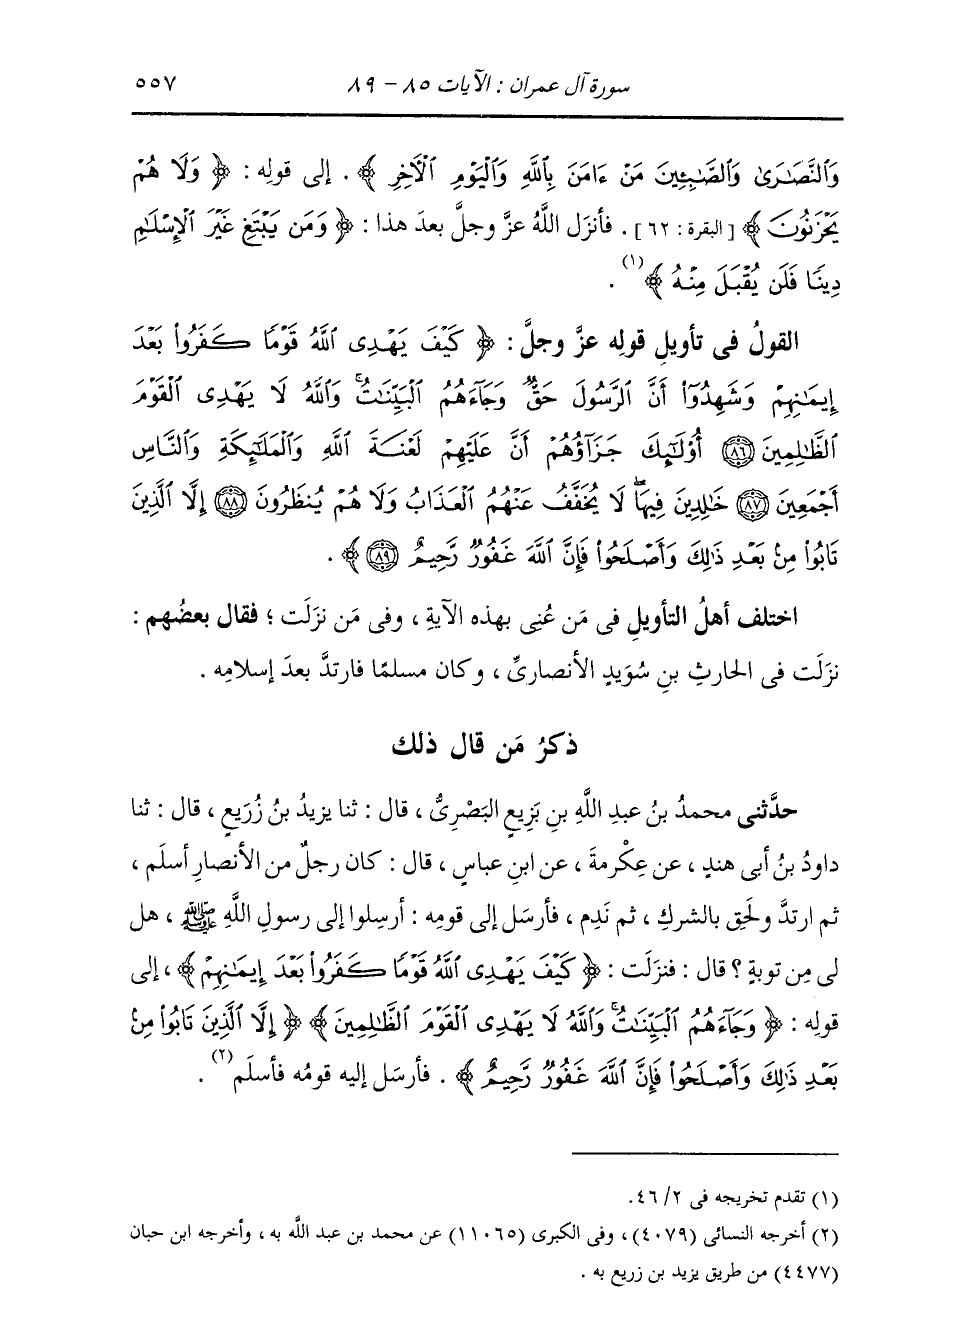 سورة آل عمران : الآيات ٨٥ - ٨٩ ٥٥٧
وَٱلنَّصَٰرَىٰ وَٱلصَّٰبِـِٔينَ مَنْ ءَامَنَ بِٱللَّهِ وَٱلْيَوْمِ ٱلْأٓخِرِ ﴾ . إلى قولِه : ﴿ وَلَا هُمْ
يَحْزَنُونَ ﴾ [ البقرة : ٦٢ ] . فأنزَل اللَّهُ عزَّ وجلَّ بعدَ هذا : ﴿ وَمَن يَبْتَغِ غَيْرَ ٱلْإِسْلَٰمِ
دِينًا فَلَن يُقْبَلَ مِنْهُ ﴾ (١) .
القولُ فى تأويلِ قولِه عزَّ وجلَّ : ﴿ كَيْفَ يَهْدِى ٱللَّهُ قَوْمًا كَفَرُوا۟ بَعْدَ
إِيمَٰنِهِمْ وَشَهِدُوٓا۟ أَنَّ ٱلرَّسُولَ حَقٌّ وَجَآءَهُمُ ٱلْبَيِّنَٰتُ ۚ وَٱللَّهُ لَا يَهْدِى ٱلْقَوْمَ
ٱلظَّٰلِمِينَ ﴿٨٦﴾ أُو۟لَٰٓئِكَ جَزَآؤُهُمْ أَنَّ عَلَيْهِمْ لَعْنَةَ ٱللَّهِ وَٱلْمَلَٰٓئِكَةِ وَٱلنَّاسِ
أَجْمَعِينَ ﴿٨٧﴾ خَٰلِدِينَ فِيهَا ۖ لَا يُخَفَّفُ عَنْهُمُ ٱلْعَذَابُ وَلَا هُمْ يُنظَرُونَ ﴿٨٨﴾ إِلَّا ٱلَّذِينَ
تَابُوا۟ مِنۢ بَعْدِ ذَٰلِكَ وَأَصْلَحُوا۟ فَإِنَّ ٱللَّهَ غَفُورٌ رَّحِيمٌ ﴿٨٩﴾ ﴾ .
اختلف أهلُ التأويلِ فى مَن عُنِى بهذه الآيةِ ، وفى مَن نزَلَت ؛ فقال بعضُهم :
نزَلَت فى الحارثِ بنِ سُوَيدٍ الأنصارىِّ ، وكان مسلمًا فارتدَّ بعدَ إسلامِه .
ذكرُ مَن قال ذلك
حدَّثنى محمدُ بنُ عبدِ اللَّهِ بنِ بَزِيعٍ البَصْرِىُّ ، قال : ثنا يزيدُ بنُ زُرَيعٍ ، قال : ثنا
داودُ بنُ أبى هندٍ ، عن عِكْرمةَ ، عن ابنِ عباسٍ ، قال : كان رجلٌ من الأنصارِ أسلَم ،
ثم ارتدَّ ولَحِق بالشركِ ، ثم نَدِم ، فأرسَل إلى قومِه : أرسِلوا إلى رسولِ اللَّهِ ﷺ ، هل
لى مِن توبةٍ ؟ قال : فنزَلَت : ﴿ كَيْفَ يَهْدِى ٱللَّهُ قَوْمًا كَفَرُوا۟ بَعْدَ إِيمَٰنِهِمْ ﴾ ، إلى
قولِه : ﴿ وَجَآءَهُمُ ٱلْبَيِّنَٰتُ ۚ وَٱللَّهُ لَا يَهْدِى ٱلْقَوْمَ ٱلظَّٰلِمِينَ ﴾ ﴿ إِلَّا ٱلَّذِينَ تَابُوا۟ مِنۢ
بَعْدِ ذَٰلِكَ وَأَصْلَحُوا۟ فَإِنَّ ٱللَّهَ غَفُورٌ رَّحِيمٌ ﴾ . فأرسَل إليه قومُه فأسلَم (٢) .
(١) تقدم تخريجه فى ٢/ ٤٦.
(٢) أخرجه النسائى (٤٠٧٩) ، وفى الكبرى (١١٠٦٥) عن محمد بن عبد الله به ، وأخرجه ابن حبان
(٤٤٧٧) من طريق يزيد بن زريع به .